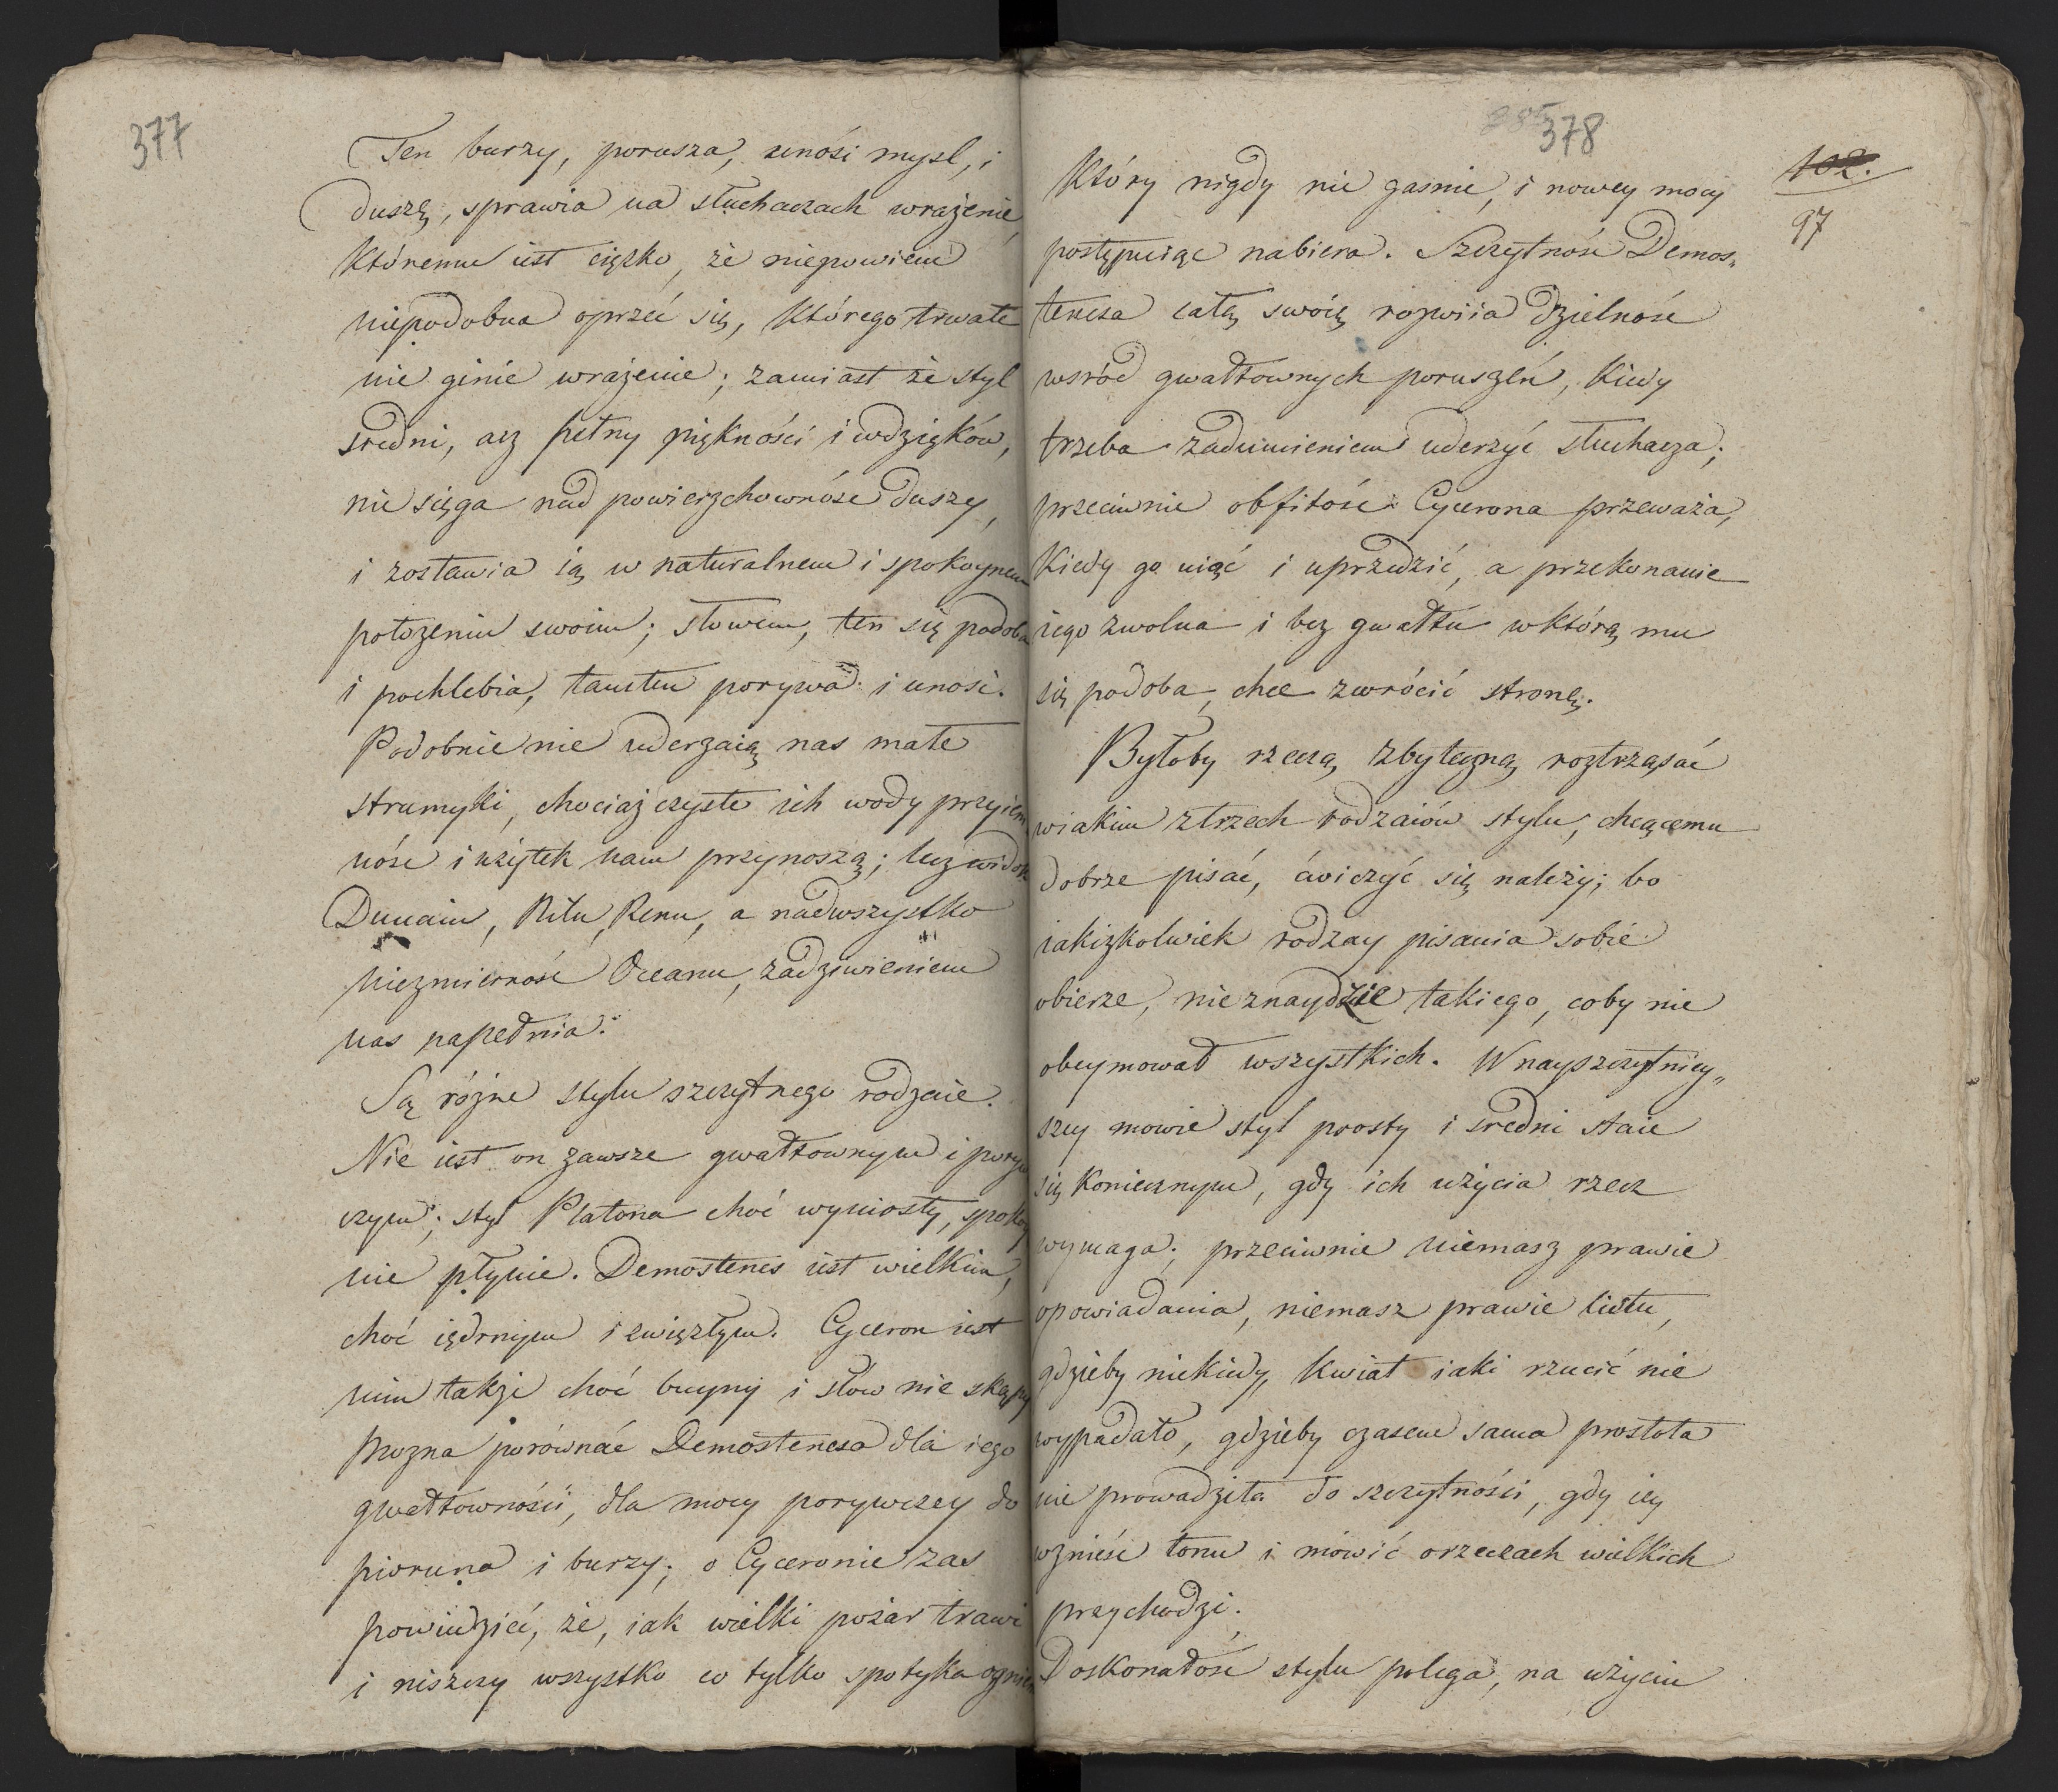 377
Ten burzy, porusza, unósi mysl, i
duszę, sprawia na słuchaczach wrażenie,
Któremu iest ciężko, że niepowiem
niepodobna oprzeć się, Którego trwałe
nie ginie wrażenie; zamiast że styl
sredni, acz pełny piękności i wdzięków,
nie sięga nad powierzchowność duszy,
i zostawia ią w naturalnem i spokoynem
położeniu swoim; słowem, ten się podoba
i pochlebia, tamten porywa i unosi.
Podobnie nie uderzaią nas małe
strumyki, chociaż czyste ich wody przyiem
ność i użytek nam przynoszą; lecz widok
Dunaiu, Nilu, Renu, a nadwszystko
niezmierność Oceanu, zadziwieniem
nas napełnia.
Są różne stylu szczytnego rodzaie.
Nie iest on zawsze gwałtownym i poryw
czym; styl Platona choć wyniosły, spokoy
nie płynie. Demostenes iest wielkim,
choć iędrnym i zwięzłym. Cyceron iest
nim także choć buyny i słow nie skąpy
Mozna porównać Demostenesa dla iego
gwałtowności, dla mocy porywczey do
pioruna i burzy; o Cyceronie zas
powiedzieć, że, iak wielki pożar trawi
i niszczy wszystko co tylko spotyka ogniem
285
378
102.
97
Który nigdy nie gasnie, i nowey mocy
postępuiąc nabiera. Szczytność Demos„
tenesa całą swoię rozwiia dzielność
wsród gwałtownych poruszeń, Kiedy
trzeba zadumieniem uderzyć słuchacza;
przeciwnie obfitość Cycerona przeważa,
Kiedy go uiąć i uprzedzić, a przekonanie
iego zwolna i bez gwałtu w którą mu
się podoba, chce zwrócić stronę.
Byłoby rzeczą zbyteczną roztrząsać
wiakim ztrzech rodzaiów stylu, chcącemu
dobrze pisać, ćwiczyć się należy; bo
iakizkolwiek rodzay pisania sobie
obierze, nieznaydzie takiego, coby nie
obeymował wszystkich. W nayszczytniey„
szey mowie styl prosty i sredni staie
się Koniecznym, gdy ich użycia rzecz
wymaga; przeciwnie niemasz prawie
opowiadania, niemasz prawie listu,
gdzieby niekiedy Kwiat iaki rzucić nie
wypadało, gdzieby czasem sama prostota
nie prowadziła do szczytności, gdy iey
wznieść tonu i mówić orzeczach wielkich
przychodzi.
Doskonałość stylu polega, na użyciu